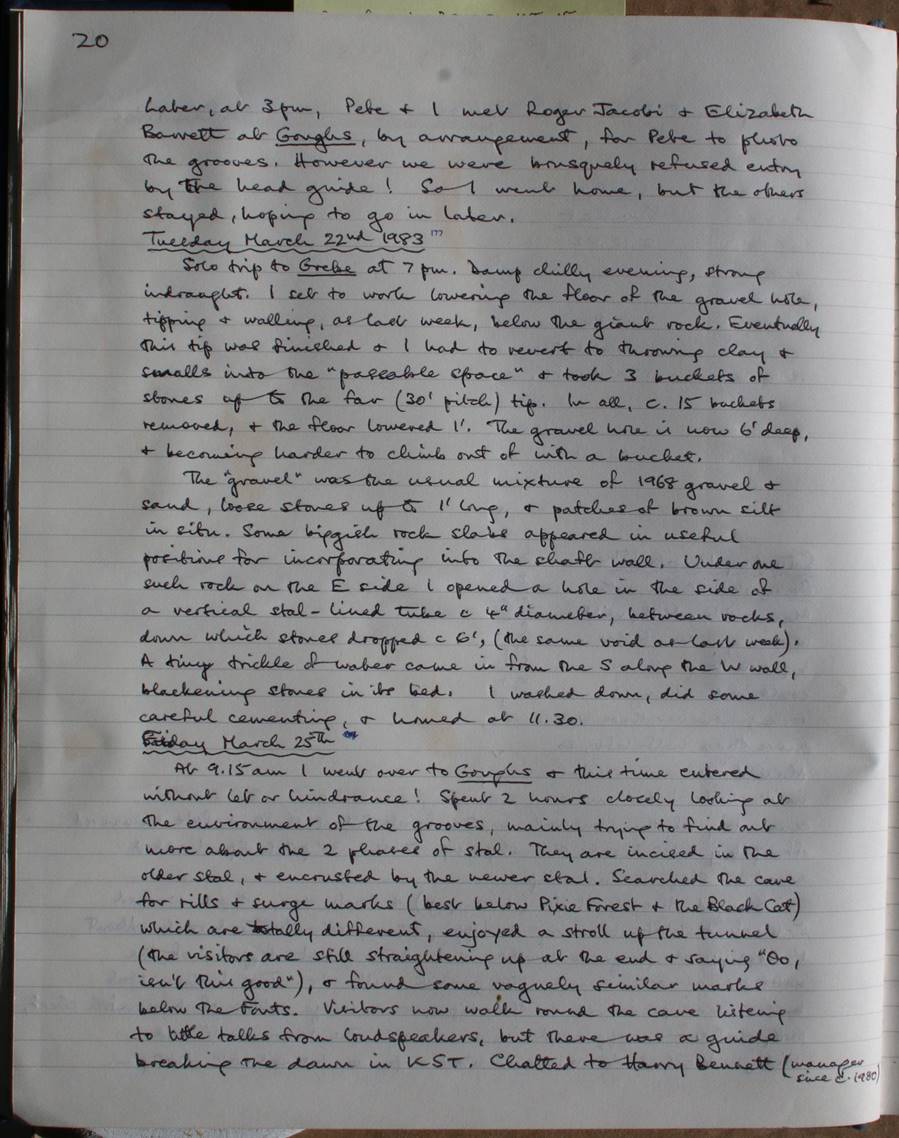 20
Later, at 3pm, Pete + I met Roger Jacobi + Elizabeth
Barrett at Goughs, by arrangement, for Pete to photo
the grooves. However we were brusquely refused entry
by the head guide! So I went home, but the others
stayed, hoping to go in later.
Tuesday March 22nd 1983
Solo trip to Grebe at 7 pm. Damp chilly evening, strong
indraught. I set to work lowering the floor of the gravel hole,
tipping + walling, as last week, below the giant rock. Eventually
this tip was finished + I had to revert to throwing clay +
smalls into the "passable space" + took 3 buckets of
stones up to the far (30' pitch) tip. In all, c. 15 buckets
removed, + the floor lowered 1'. The gravel hole is now 6' deep,
+ becoming harder to climb out of with a bucket.
The "gravel" was the usual mixture of 1968 gravel +
sand, loose stones up to 1' long, + patches of brown silt
in situ. Some biggish rock slabs appeared in useful
positions for incorporating into the shaft wall. Under one
such rock on the E side I opened a hole in the side of
a vertical stal-lined tube c 4" diameter, between rocks,
down which stones dropped c 6', (the same void as last week).
A tiny trickle of water came in from the S along the W wall,
blackening stones in its bed. I washed down, did some
careful cementing, + homed at 11.30.
Friday March 25th
At 9.15am I went over to Goughs + this time entered
without let or hindrance! Spent 2 hours closely looking at
the environment of the grooves, mainly trying to find out
more about the 2 phases of stal. They are incised in the
older stal, + encrusted by the newer stal. Searched the cave
for rills + surge marks (best below Pixie Forest + the Black Cat)
which are totally different, enjoyed a stroll up the tunnel
(the visitors are still straightening up at the end + saying "Oo,
isn't this good"), + found some vaguely similar marks
below the Fonts. Visitors now walk round the cave listening
to little talks from loudspeakers, but there was a guide
breaking the dawn in KST. Chatted to Harry Bennett (manager
since c. 1980)